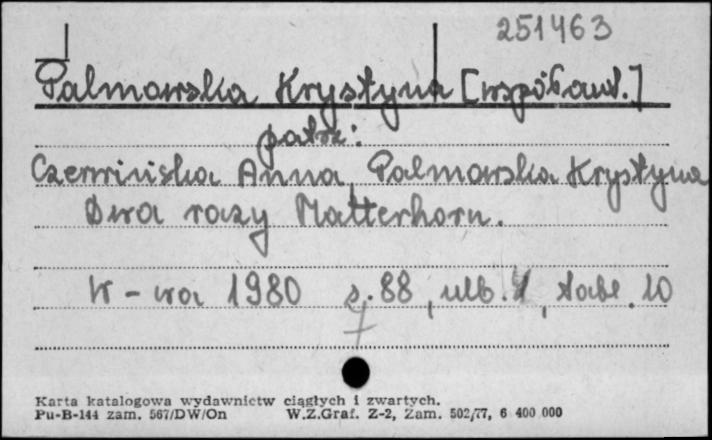 251463
Palmowska Krystyna [współaut.]
patrz:
Czerwińska Anna, Palmowska Krystyna
Dwa razy Matterhorn.
W-wa 1980 s. 88, ulb. 1, tabl. 10
Karta katalogowa wydawnictw ciągłych i zwartych.
Pu-B-144 zam. 567/DW/On W.Z.Graf. Z-2, Zam. 502/77, 6 400 000